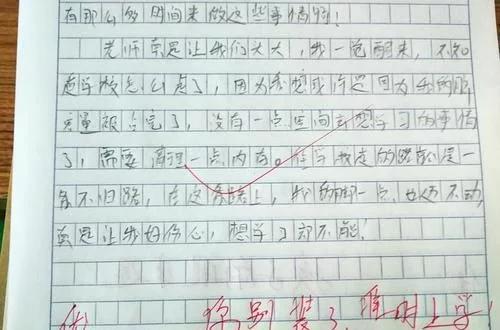 有那么多时间来做这些事情的！
老师总是让我们天天，我一觉醒来，不知
道学校怎么走了，因为我想或许是因为我的脑
容量被占完了，没有一点空间去想学习的事情
了，需要清理一点内存。在学校走的路就是一
条不归路，在这条路上，我的脚一点也迈不动，
真是让我好伤心，想学习却不能！
你别装了准时上学！